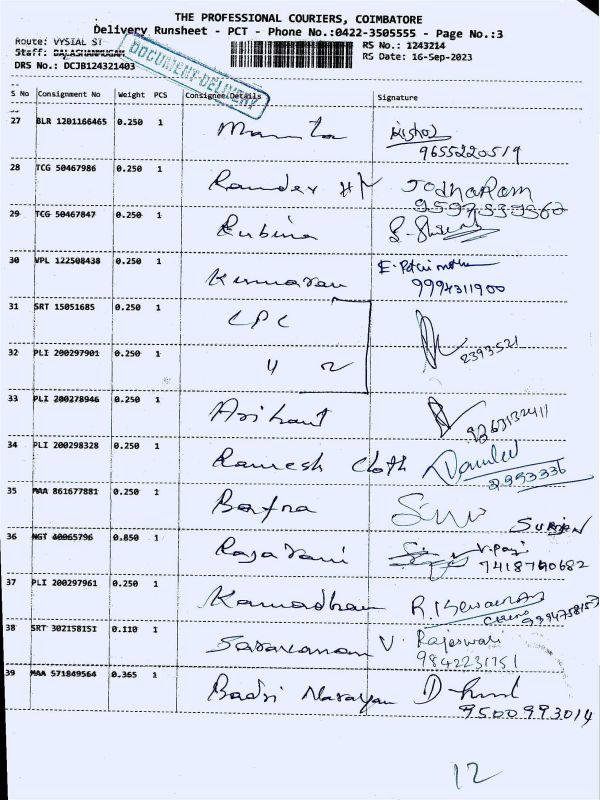 THE PROFESSIONAL COURIERS, COIMBATORE
Delivery Runsheet - PCT - Phone No.:0422-3505555 - Page No.:3
Route: VYSIAL ST RS No.: 1243214
Staff: BALASHANMUGAM RS Date: 16-Sep-2023
DRS No.: DCJB124321403
DOCUMENT DELIVERY
S No Consignment No Weight PCS Consignee Details Signature
27 BLR 1201166465 0.250 1 Mamta
9655220519
28 TCG 50467986 0.250 1 Ramdev H/ JodhaRam
29 TCG 50467847 0.250 1 Rubina
30 VPL 122508438 0.250 1 Kumaran
9994311900
31 SRT 15051685 0.250 1 LPC
2393521
32 PLI 200297901 0.250 1
33 PLI 200278946 0.250 1 Arihant
34 PLI 200298328 0.250 1 Ramesh Cloth
35 MAA 861677881 0.250 1
36 NGT 40065796 0.850 1 Rajarani
7418740682
37 PLI 200297961 0.250 1 Kamadhanu
38 SRT 302158151 0.110 1 Saravanan V. Rajeswari
9842231751
39 MAA 571849564 0.365 1 Badri Narayan
9500993014
12